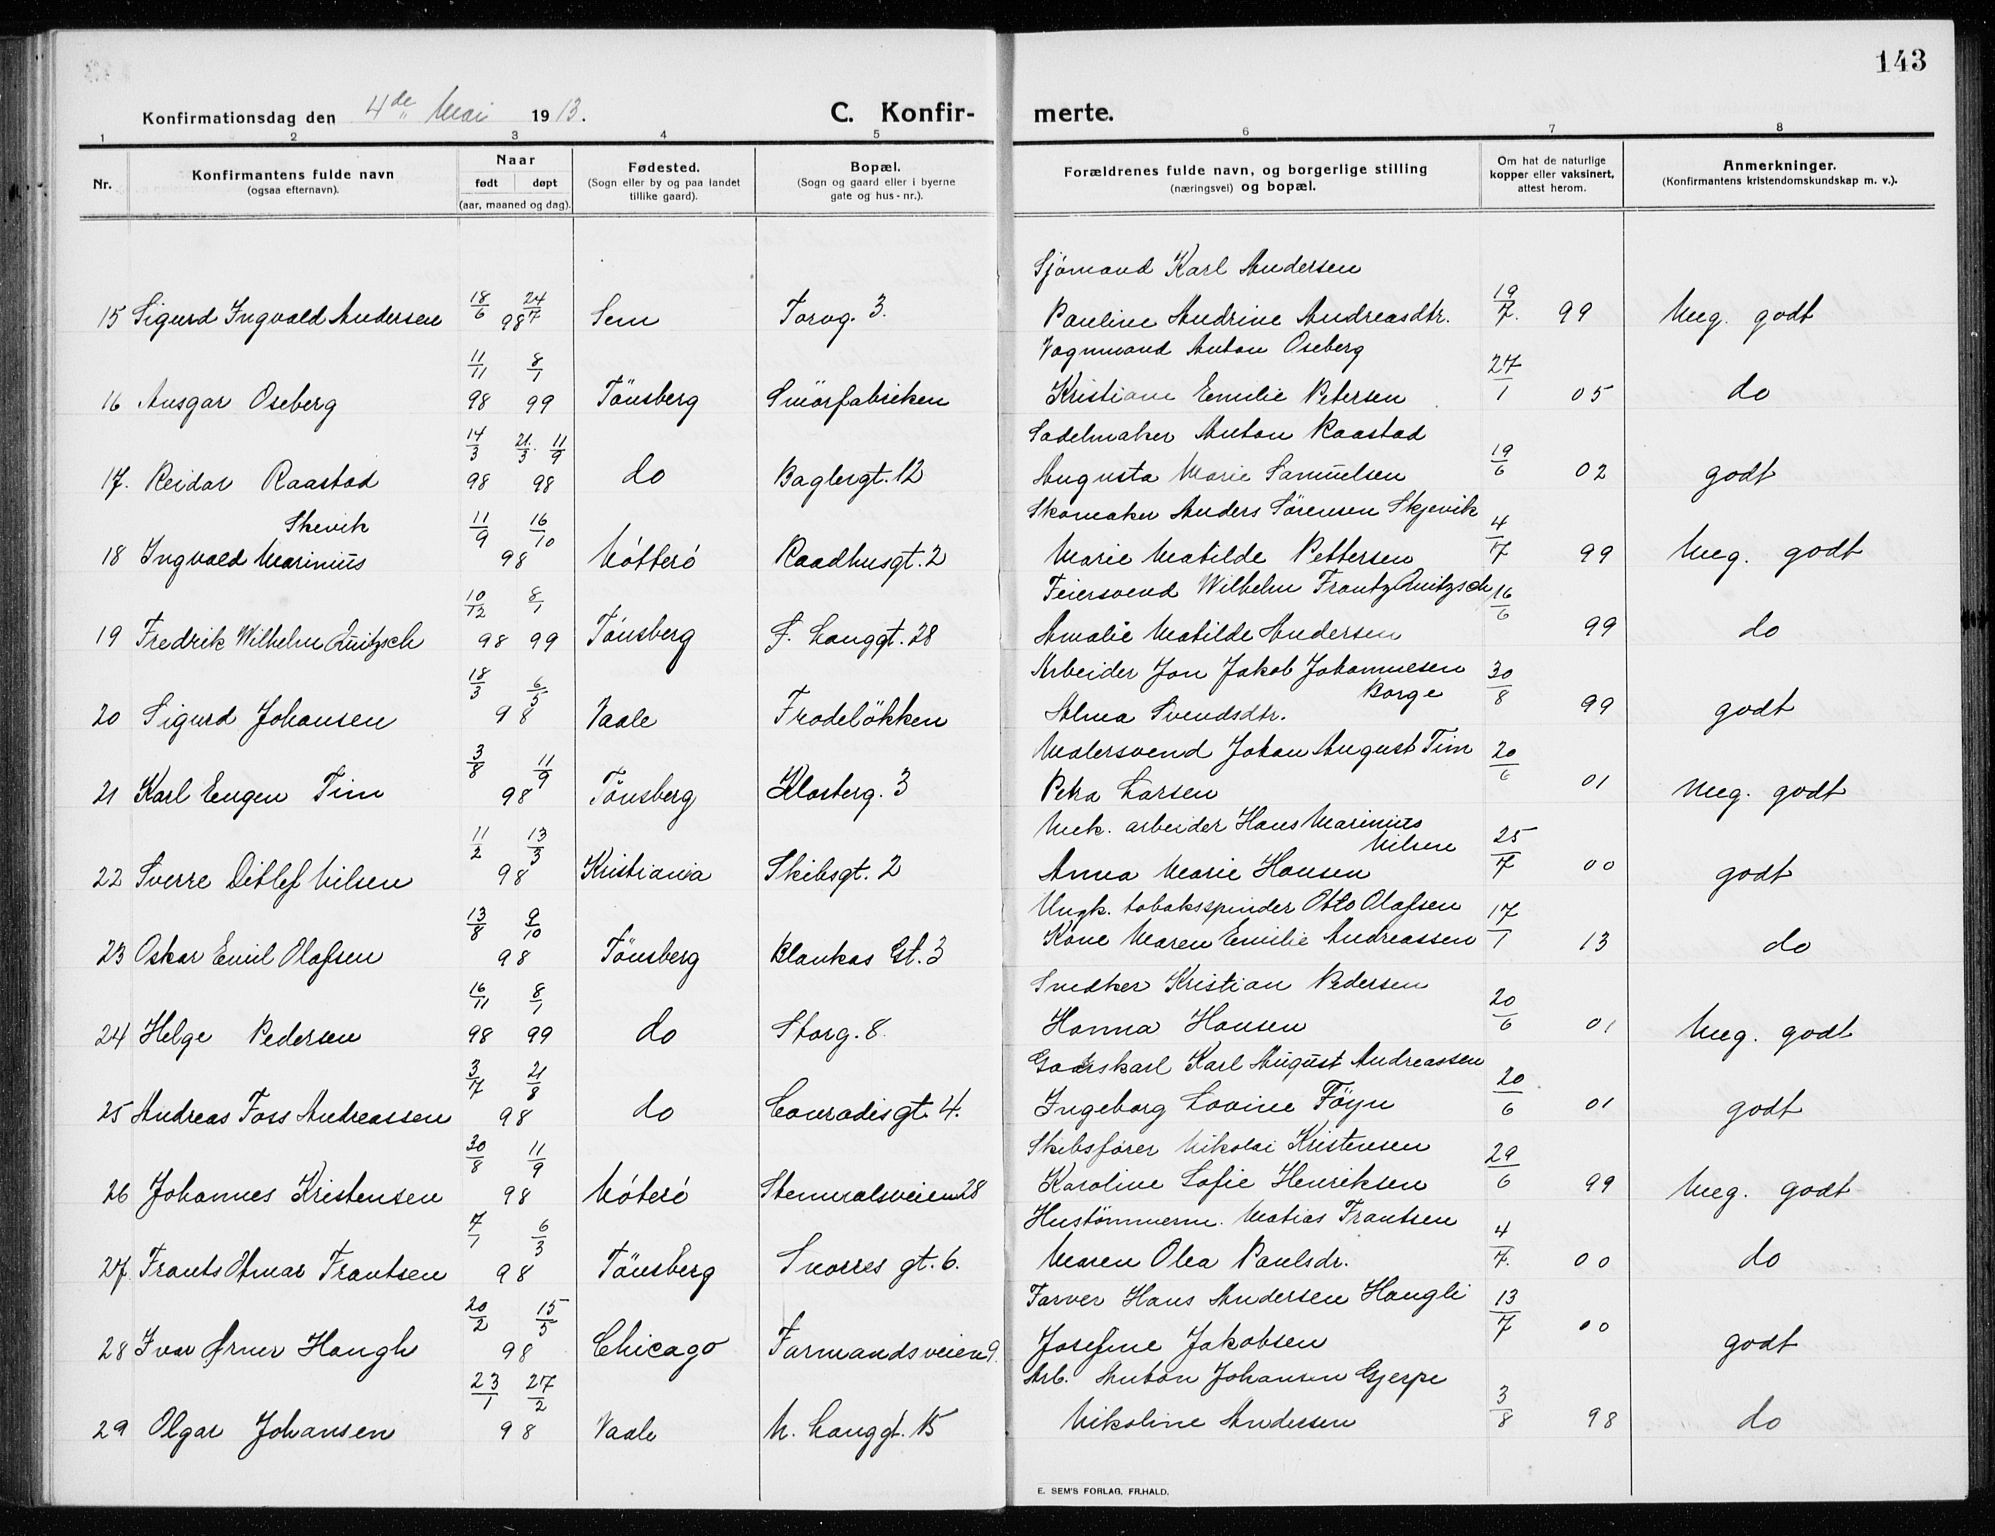 143
Konfirmationsdag den 4de Mai 1913. C. Konfir- merte.
1 2 3 4 5 6 7 8
Nr. Konfirmantens fulde navn (ogsaa efternavn). Naar født døpt (aar, maaned og dag). Fødested. (Sogn eller by og paa landet tillike gaard). Bopæl. (Sogn og gaard eller i byerne gate og hus-nr.). Forældrenes fulde navn, og borgerlige stilling (næringsvei) og bopæl. Om hat de naturlige kopper eller vaksinert, attest herom. Anmerkninger. (Konfirmantens kristendomskundskap m. v.).
Sjömand Karl Andersen
15 Sigurd Ingvald Andersen 18/6 24/7 98 Sem Torvg. 3. Pauline Andrine Andreasdtr. 19/7. 99 Meg. godt
Vognmand Anton Oseberg
16 Ansgar Oseberg 11/11 98 8/1 99 Tönsberg Smörfabrikken Kristiane Emilie Petersen 27/1 05 do
Sadelmaker Anton Raastad
17. Reidar Raastad 14/3 98 21/3. 11/9 98 do Baglergt. 12 Augusta Marie Samuelsen 19/6 02 godt
Skevik Skomaker Anders Sörensen Skjevik
18 Ingvald Marinius 11/9 16/10 98 Nötterö Raadhusgt. 2 Marie Matilde Pettersen 4/7 99 Meg. godt
Feiersvend Wilhelm Frantz Quitzsch
19 Fredrik Wilhelm Quitzsch 10/12 98 8/1 99 Tönsberg S. Langgt. 28 Amalie Matilde Andersen 16/6 99 do
Arbeider Jon Jakob Johannesen
Borge
20 Sigurd Johansen 18/3 6/5 98 Vaale Frodelökken Alma Svendsdtr. 30/8 99 godt
Malersvend Johan August Tim
21 Karl Eugen Tim 3/8 11/9 98 Tönsberg Klosterg. 3 Petra Larsen 20/6 01 Meg. godt
Mek. arbeider Hans Marinius
Nilsen
22 Sverre Ditlef Nilsen 11/2 13/3 98 Kristiania Skibsgt. 2 Anna Marie Hansen 25/7 00 godt
Ungk. tobaksspinder Otto Olafsen
23 Oskar Emil Olafsen 13/8 9/10 98 Tönsberg Blankas Gt. 3 Kone Maren Emilie Andreassen 17/1 13 do
Snedker Kristian Pedersen
24 Helge Pedersen 16/11 98 8/1 99 do Storg. 8. Hanna Hansen 20/6 01 Meg. godt
Gaardskarl Karl August Andreassen
25 Andreas Foss Andreassen 3/7 21/8 98 do Conradisgt. 4. Ingeborg Lovine Föyn 20/6 01 godt
Skibsförer Nikolai Kristensen
26 Johannes Kristensen 30/8 11/9 98 Nöterö Stenmalsveien 28 Karoline Sofie Henriksen 29/6 99 Meg. godt
Hustömmerm. Matias Frantsen
27. Frants Otmar Frantsen 7/1 6/3 98 Tönsberg Snorres gt. 6. Maren Olea Paulsdr. 4/7. 00 do
Farver Hans Andersen Haugli
28 Ivar Ørner Haugli 20/2 15/5 98 Chicago Farmandsveien 9. Josefine Jakobsen 13/7 00 godt
Arb. Anton Johansen Gjerpe
29 Olgar Johansen 23/1 27/2 98 Vaale N. Langgt. 15 Nikoline Andersen 3/8 98 do
E. SEM'S FORLAG, FR.HALD.